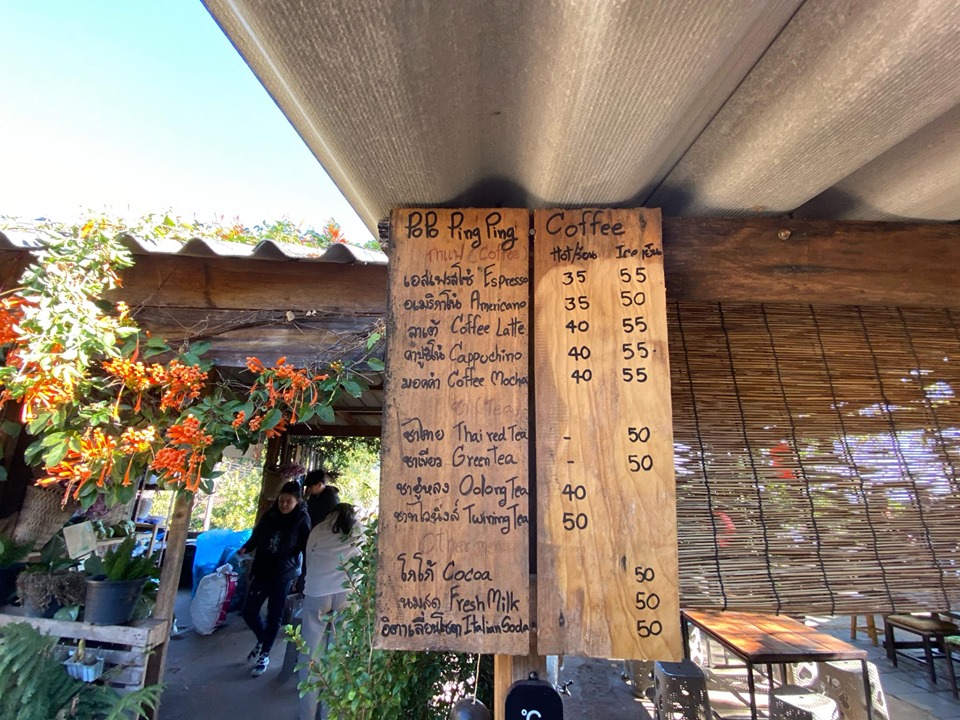 Ping Ping Coffee
กาแฟ (Coffee) Hot/ร้อน Ice เย็น
เอสเพรสโซ่ Espresso 35 55
อเมริกาโน่ Americano 35 50
ลาเต้ Coffee Latte 40 55
คาปูชิโน่ Cappuchino 40 55
มอคค่า Coffee Mocha 40 55
ชา (Tea)
ชาไทย Thai red Tea - 50
ชาเขียว Green Tea - 50
ชาอู่หลง Oolong Tea 40
ชาทไวนิงส์ Twining Tea 50
Other menu
โกโก้ Cocoa 50
นมสด Fresh Milk 50
อิตาเลี่ยนโซดา Italian Soda 50
°C